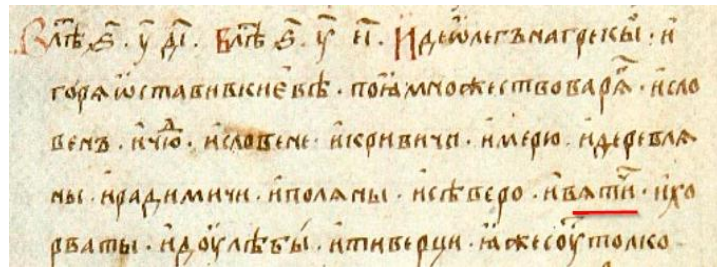 В лѣⷮ ҂ѕ҃. у҃ д҃і. В лѣⷮ ҂ѕ҃. у҃ е҃і. Иде ѡлегъ на грекы. и
горѧ ѡставив в києвѣ. поꙗ множество варѧⷢ. и сло
венъ. и чюⷣ. и словене. и кривичи. и мерю. и деревлѧ
ны. и радимичи. и полѧны. и сѣверо. и вѧтиⷱ. и хо
рваты. и доулѣбы. и тиверци. ꙗже соуⷮ толко